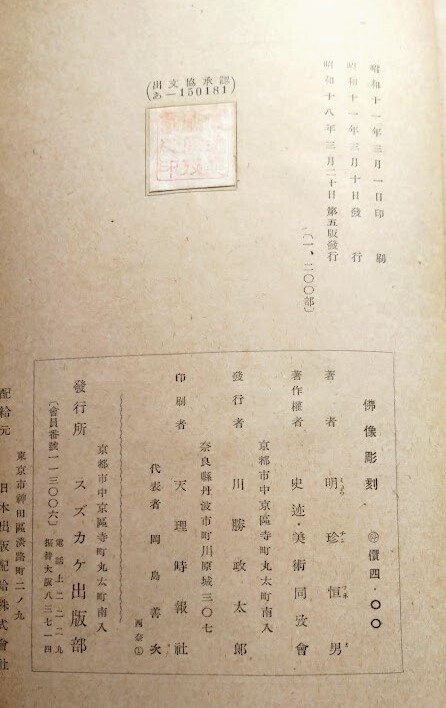 (出文協承認
あー150181)
昭和十一年三月一日印刷
昭和十一年三月十日發行
昭和十八年三月二十日第五版發行
(一、二〇〇部)
佛像彫刻 價四・〇〇
著者 明珍恒男
著作權者 史迹・美術同攷會
京都市中京區寺町丸太町南入
發行者 川勝政太郎
奈良縣丹波市町川原城三〇七
印刷者 天理時報社
代表者 岡島善次
西奈①
京都市中京區寺町丸太町南入
發行所 スズカケ出版部
電話上二二二九
(會員番號一一三〇〇六) 振替大阪八三七一四
東京市神田區淡路町二ノ九
配給元 日本出版配給株式會社